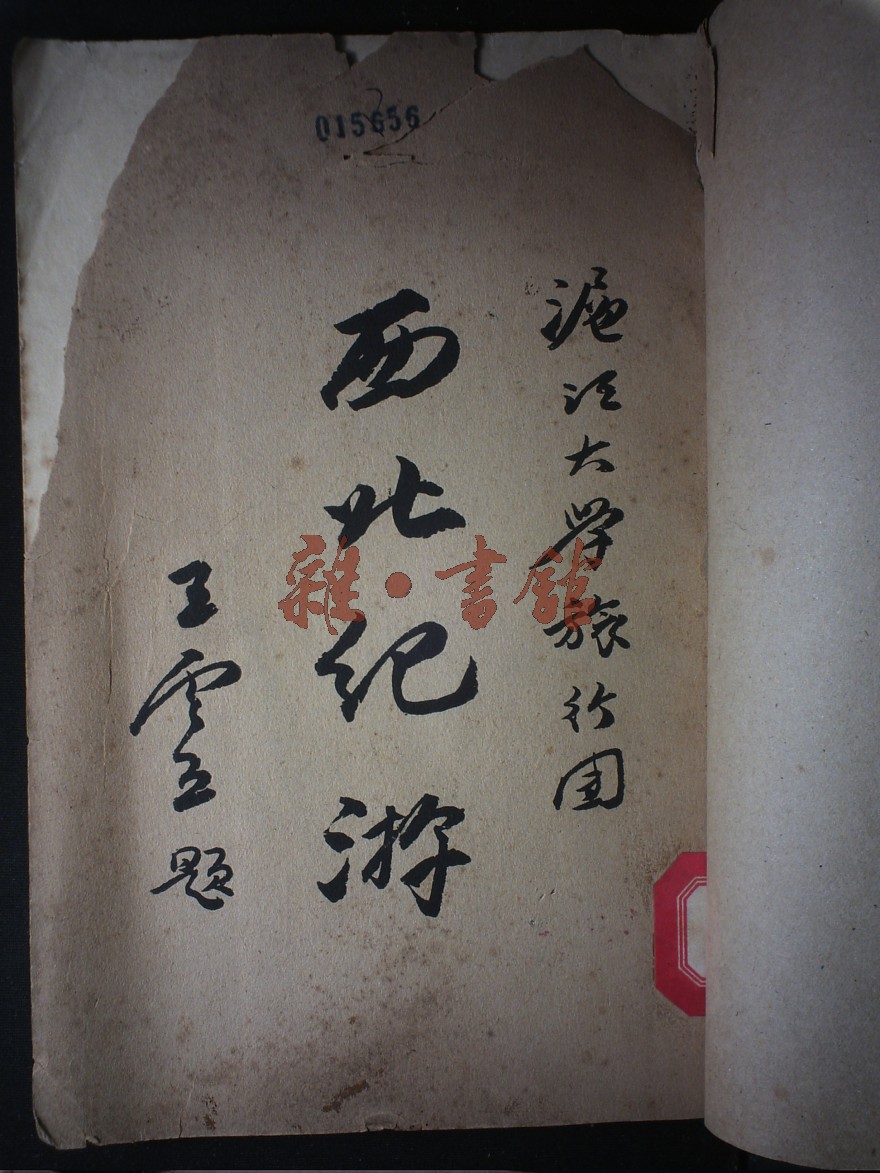 015656
滬江大学旅行团
西北纪游
王雲五题
雜·書館